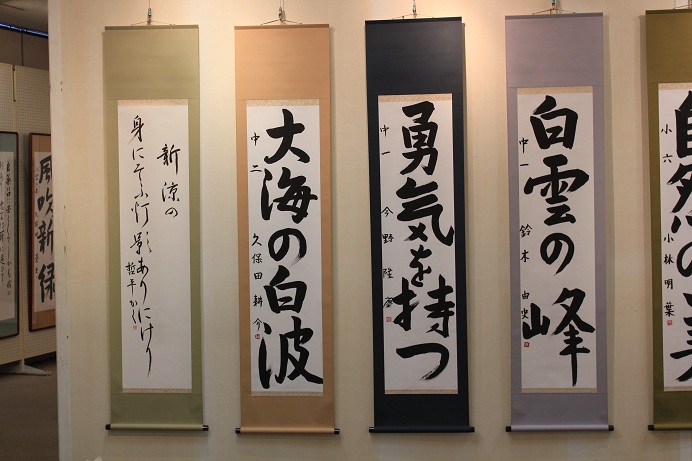 新涼の
身にそふ灯影ありにけり
哲平かく
大海の白波
中二
久保田耕介
勇気を持つ
中一
今野隆
白雲の峰
中一
鈴木由史
自然の美
小六
小林明葉
風吹新緑